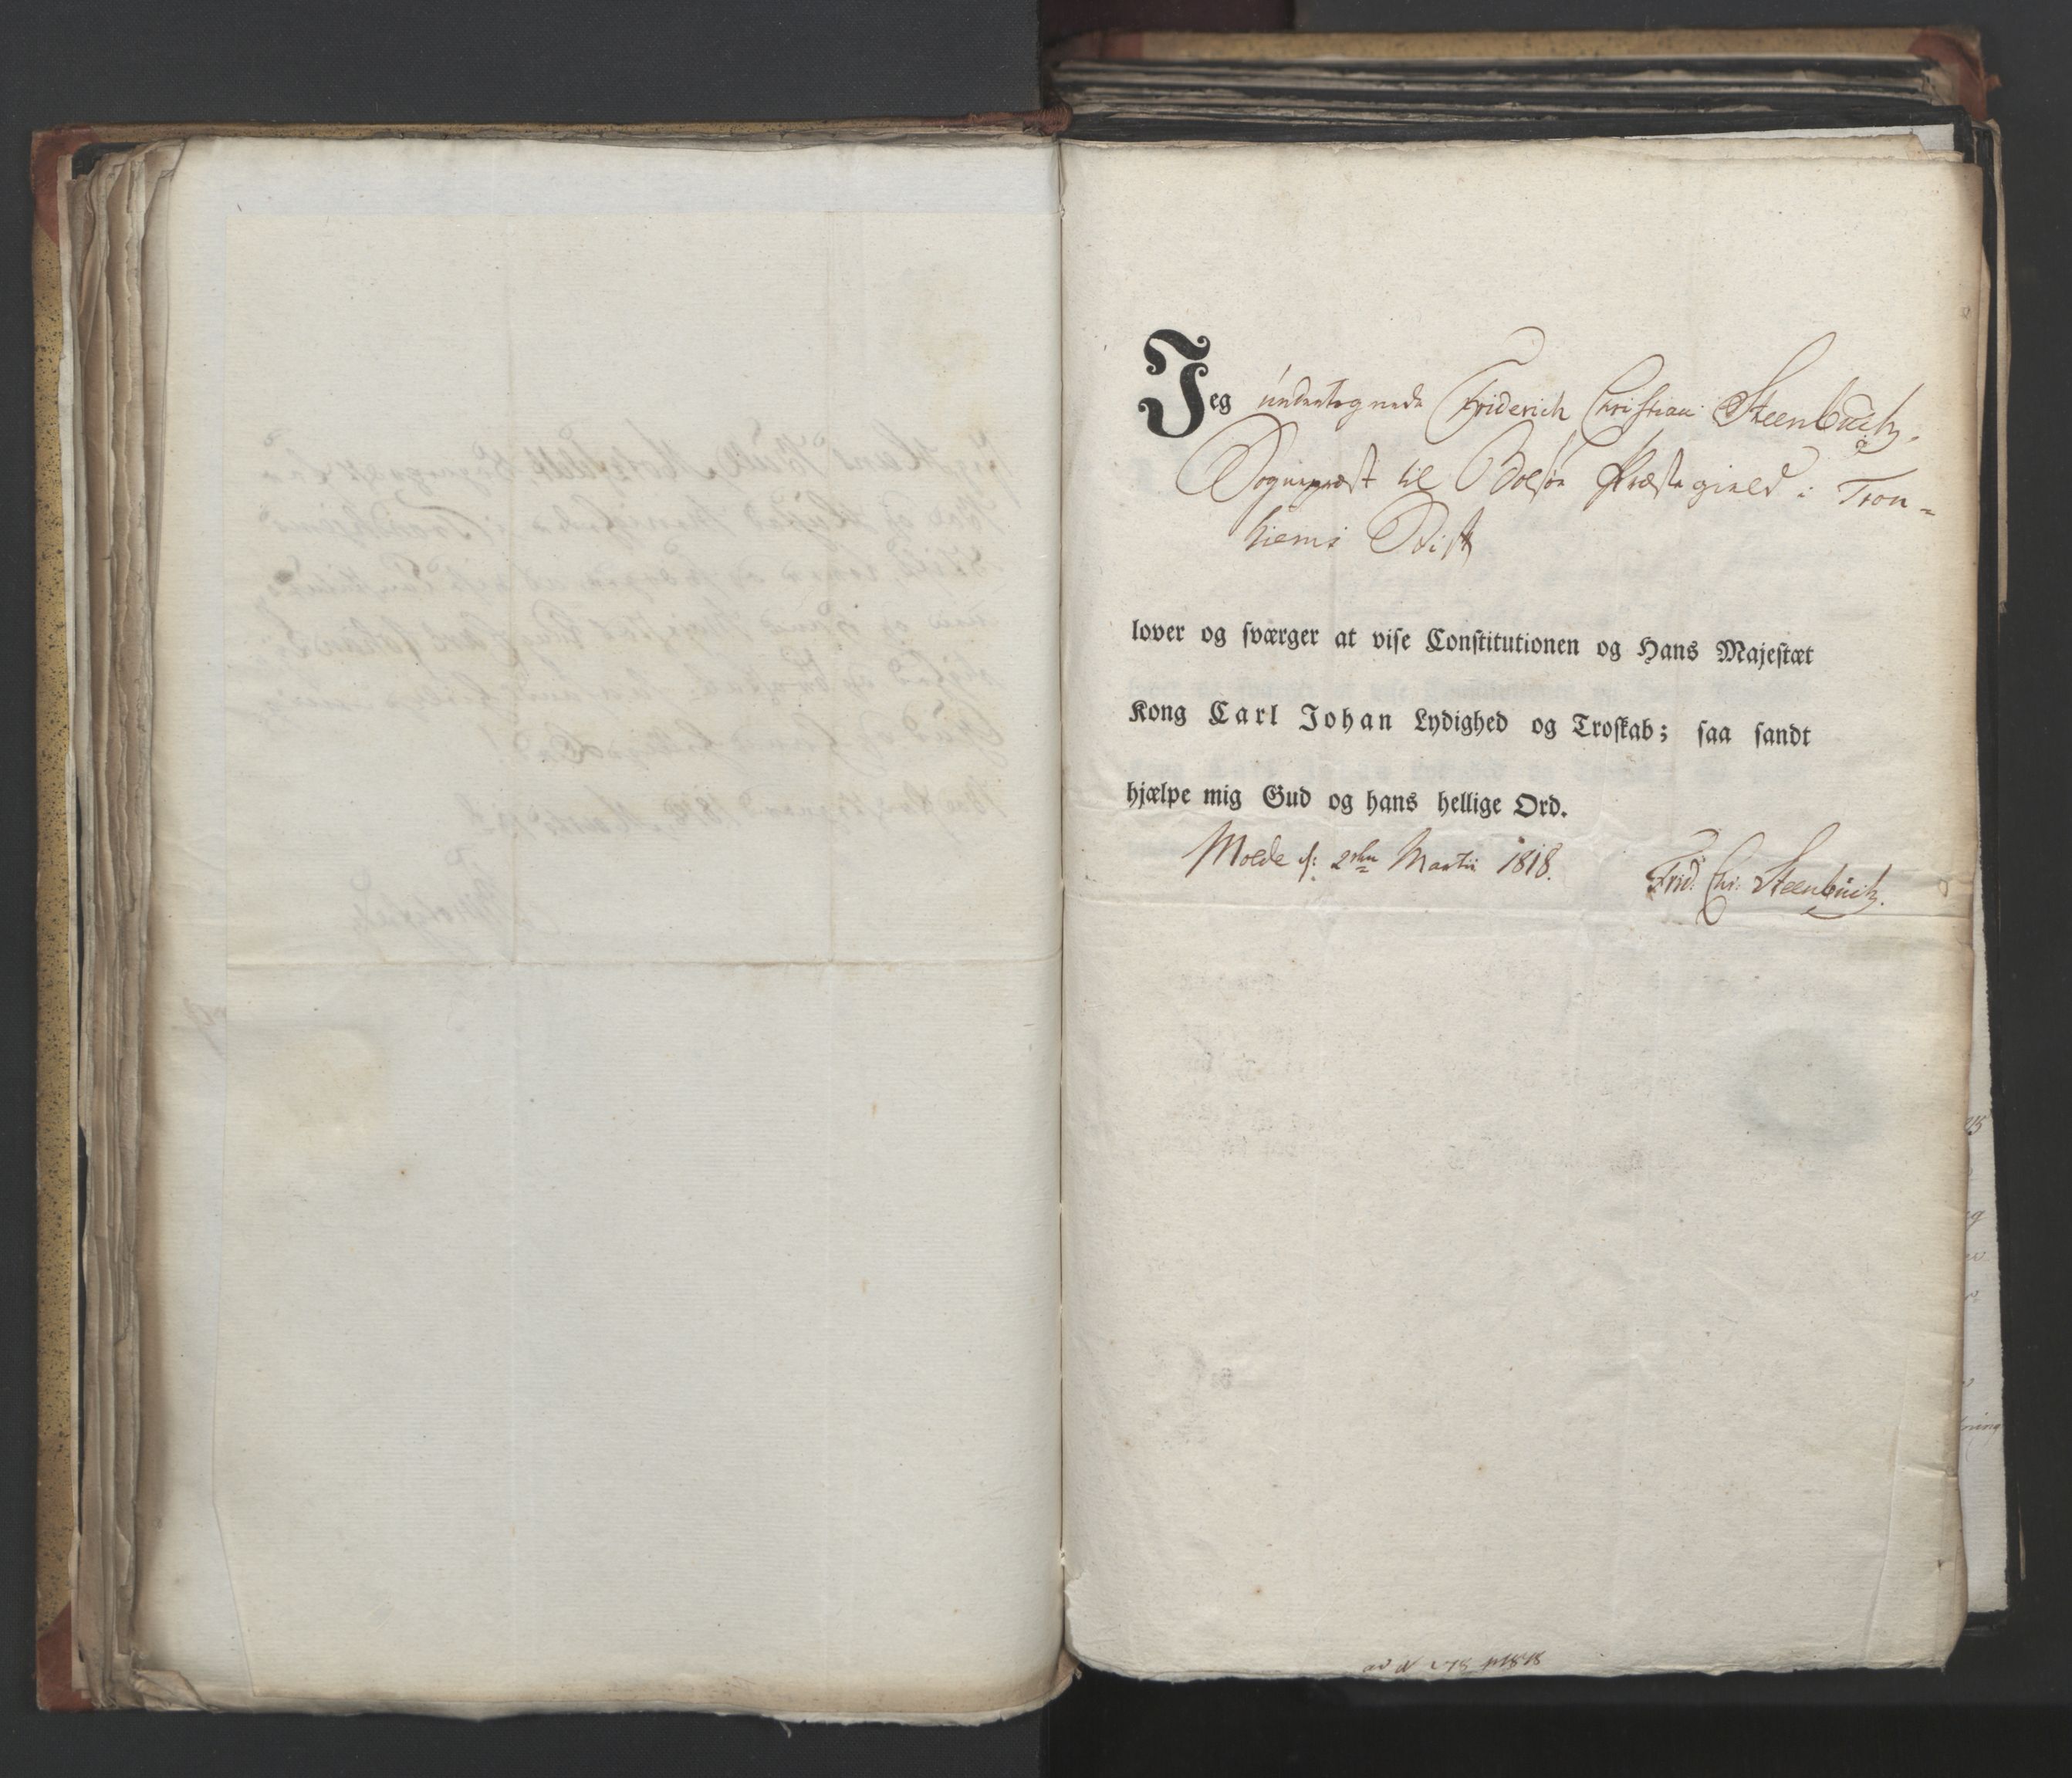 Jeg undertegnede Friderich Christian Steenbuch,
Sogneprest til Bolsøe Præstegield i Tron-
hiems Stift
lover og sværger at vise Constitutionen og Hans Majestæt
Kong Carl Johan Lydighed og Troskab; saa sandt
hjælpe mig Gud og hans hellige Ord.
Molde d: 2den Martii 1818.
Frid: Chr: Steenbuch.